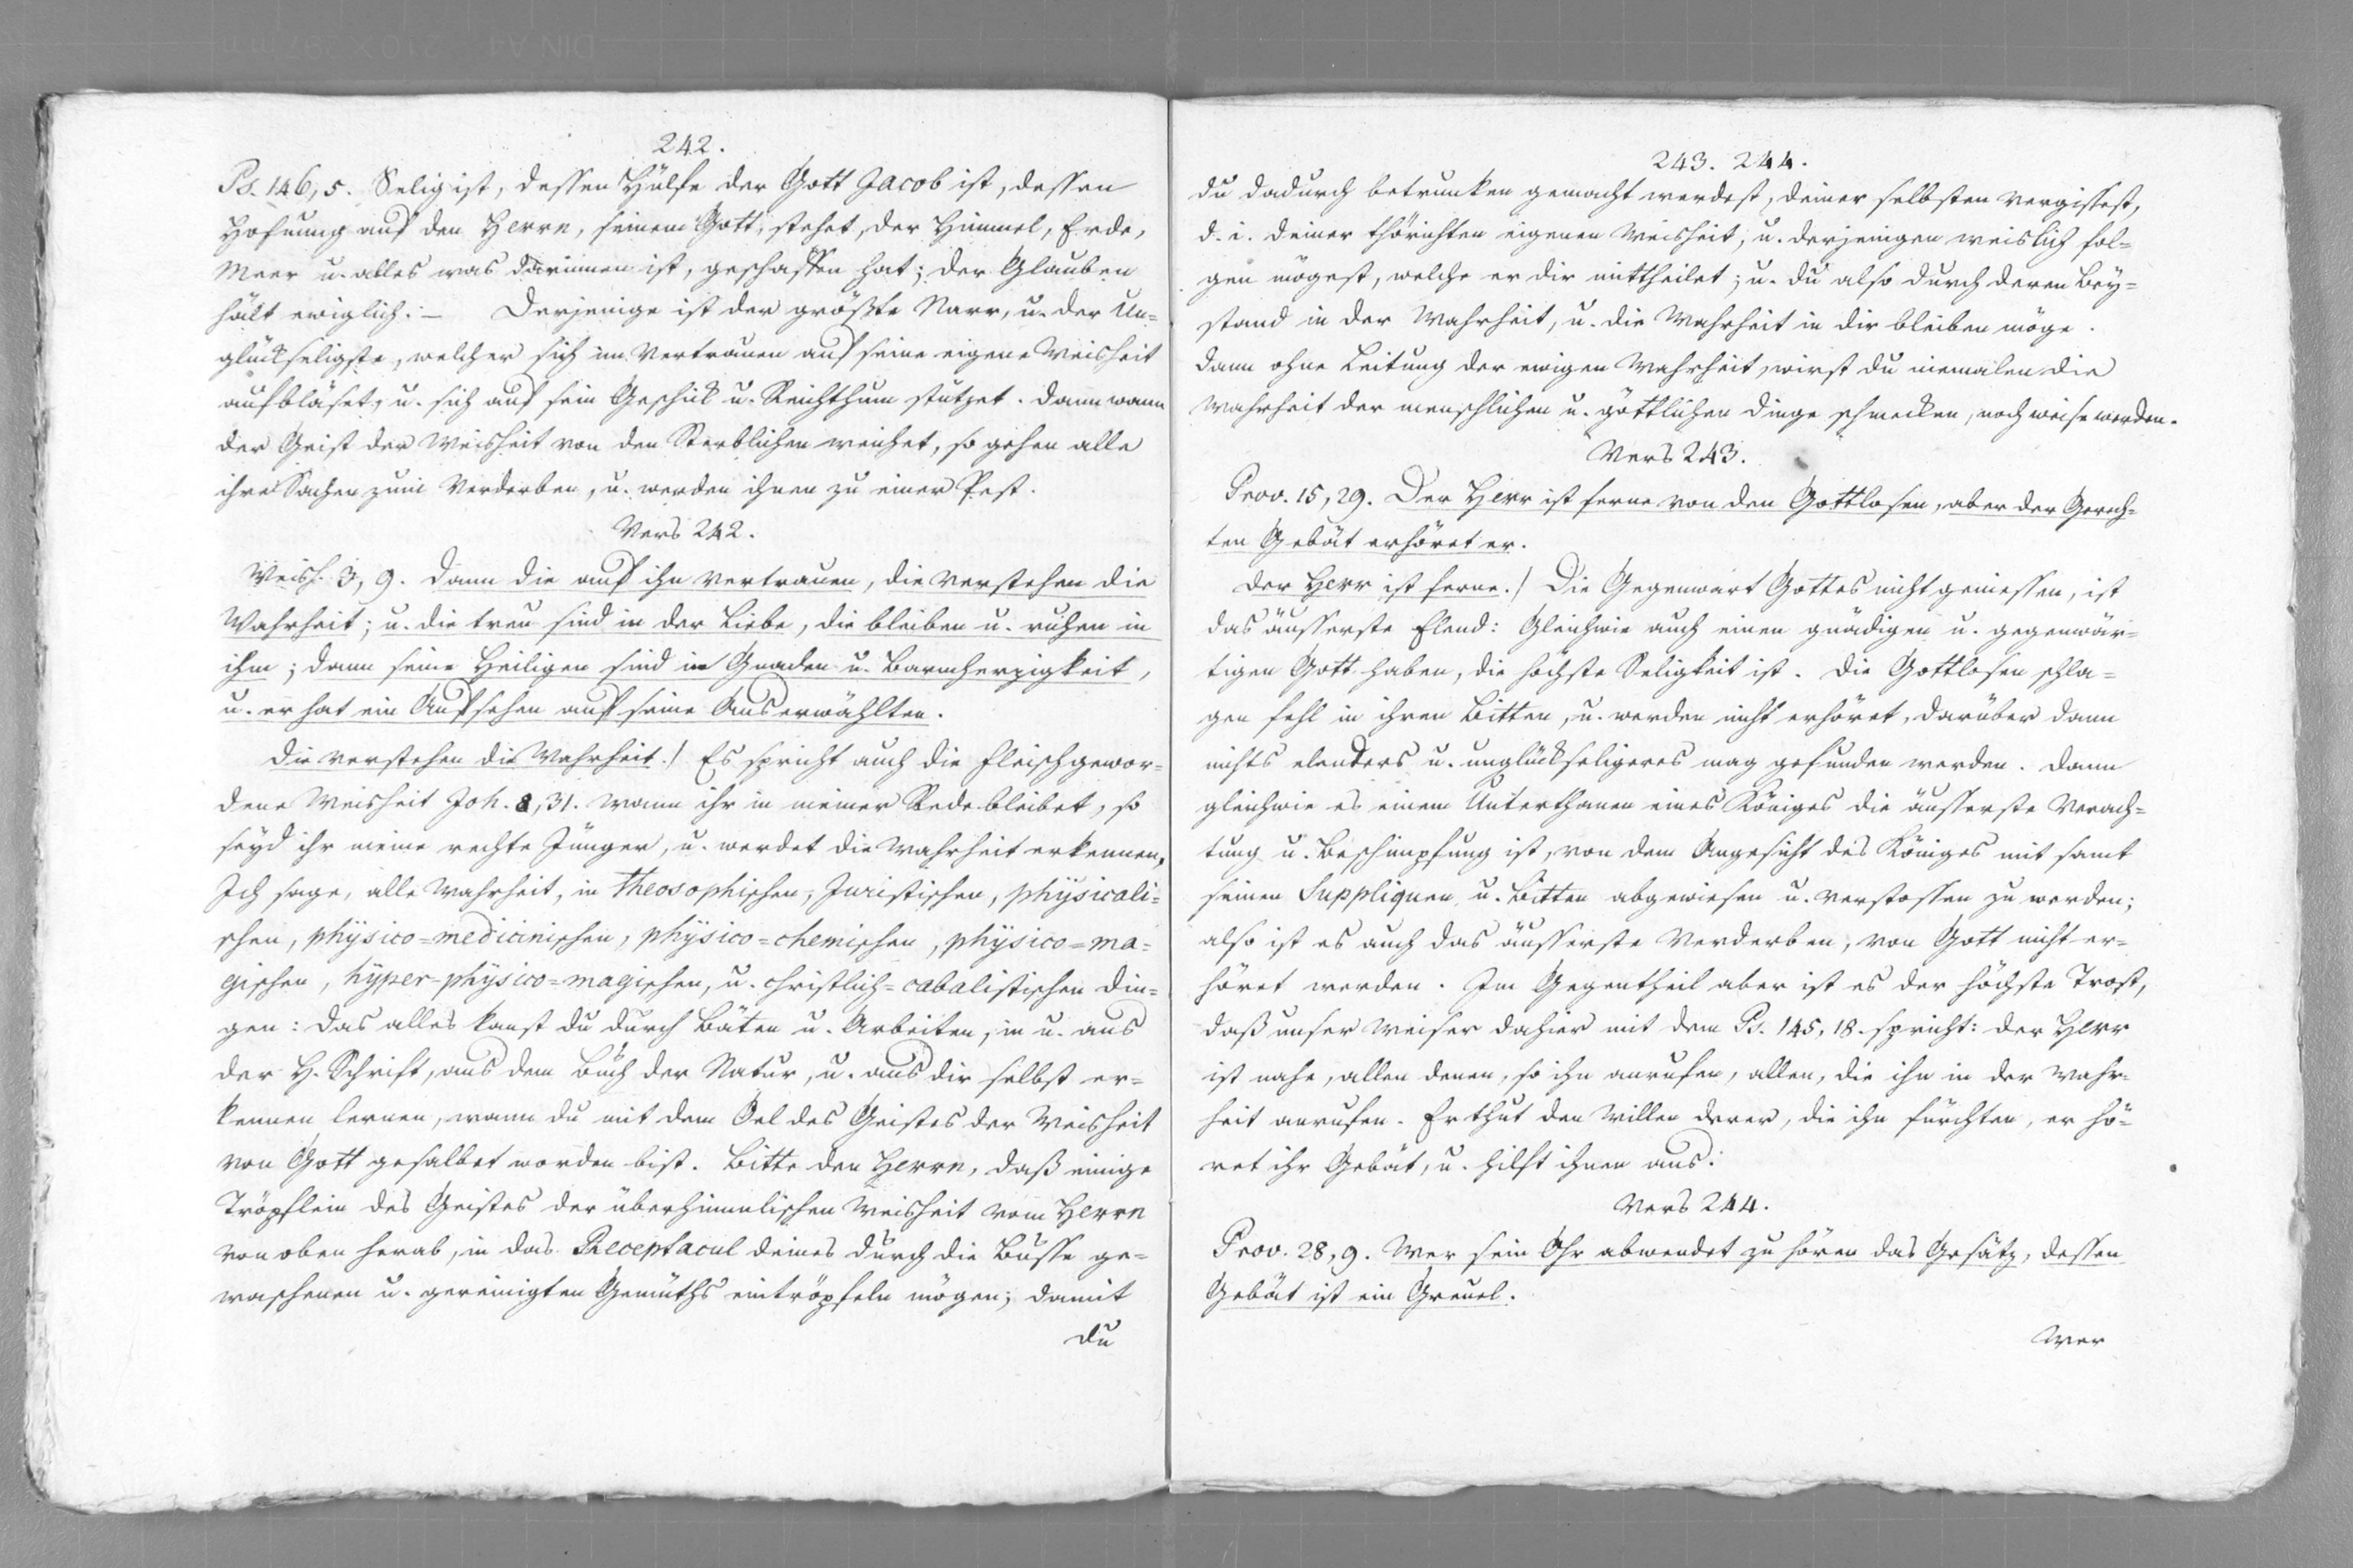 242.
Ps. 146, 5. Selig ist, dessen Hülfe der Gott Jacob ist, dessen
Hofnung auf den Herrn, seinem Gott, stehet, der Himmel, Erde,
Meer u. alles was darinnen ist, geschaffen hat; der Glauben
hält ewiglich. — Derjenige ist der größte Narr, u. der Un=
glückseligste, welcher sich im Vertrauen auf seine eigene Weisheit
aufbläset, u. sich auf sein Geschick u. Reichthum stützet. Dann wann
der Geist der Weisheit von den Sterblichen weichet, so gehen alle
ihre Sachen zum Verderben, u. werden ihnen zu einer Pest.
Vers 242.
Weish. 3, 9. Dann die auf ihn vertrauen, die verstehen die
Wahrheit; u. die treu sind in der Liebe, die bleiben u. ruhen in
ihm; dann seine Heiligen sind in Gnaden u. Barmherzigkeit,
u. er hat ein Aufsehen auf seine Auserwählten.
Die verstehen die Wahrheit.) Es spricht auch die fleischgewor=
dene Weisheit Joh. 8, 31. Wann ihr in meiner Rede bleibet, so
seyd ihr meine rechte Jünger, u. werdet die Wahrheit erkennen,
Ich sage, alle Wahrheit, in Theosophischen, Juristischen, physicali=
schen, physico=medicinischen, physico=chemischen, physico=ma=
gischen, hyper-physico=magischen, u. christlich=cabalistischen Din=
gen: das alles kanst du durch Bäten u. Arbeiten, in u. aus
der H. Schrift, aus dem Buch der Natur, u. aus dir selbst er=
kennen lernen, wann du mit dem Oel des Geistes der Weisheit
von Gott gesalbet worden bist. Bitte den Herrn, daß einige
Tröpflein des Geistes der überhimmlischen Weisheit vom Herrn
von oben herab, in das Receptacul deines durch die Busse ge=
waschenen u. gereinigten Gemüths eintröpfeln mögen; damit
du
243. 244.
du dadurch betrunken gemacht werdest, deiner selbsten vergissest,
d. i. deiner thörichten eigenen Weisheit, u. derjenigen weislich fol=
gen mögest, welche er dir mittheilet; u. du also durch deren Bey=
stand in der Wahrheit, u. die Wahrheit in dir bleiben möge.
Dann ohne Leitung der ewigen Wahrheit, wirst du niemalen die
Wahrheit der menschlichen u. göttlichen Dinge schmecken, noch weise werden.
Vers 243.
Prov. 15, 29. Der Herr ist ferne von den Gottlosen, aber der Gerech=
ten Gebät erhöret er.
Der Herr ist ferne.) Die Gegenwart Gottes nicht geniessen, ist
das äusserste Elend: Gleichwie auch einen gnädigen u. gegenwär=
tigen Gott haben, die höchste Seligkeit ist. Die Gottlosen schla=
gen fehl in ihren Bitten, u. werden nicht erhöret, darüber dann
nichts elenders u. unglückseligeres mag gefunden werden. Dann
gleichwie es einem Unterthanen eines Königes die äusserste Verach=
tung u. Beschimpfung ist, von dem Angesicht des Königes mit samt
seinen Suppliquen u. Bitten abgewiesen u. verstossen zu werden;
also ist es auch das äusserste Verderben, von Gott nicht er=
höret werden. Im Gegentheil aber ist es der höchste Trost,
daß unser Weiser dahier mit dem Ps. 145, 18. spricht: Der Herr
ist nahe, allen denen, so ihn anrufen, allen, die ihn in der Wahr=
heit anrufen. Er thut den Willen derer, die ihn fürchten, er hö=
ret ihr Gebät, u. hilft ihnen aus.
Vers 244.
Prov. 28, 9. Wer sein Ohr abwendet zu hören das Gesätz, dessen
Gebät ist ein Greuel.
Wer